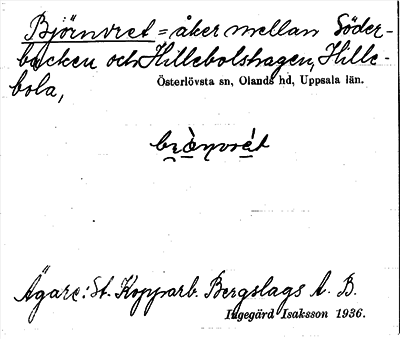 Björnvret = åker mellan Söder-
backen och Hillebolshagen, Hille-
bola,
Österlövsta sn, Olands hd, Uppsala län.
Ägare: St. Kopparb. Bergslags A. B.
Ingegärd Isaksson 1936.